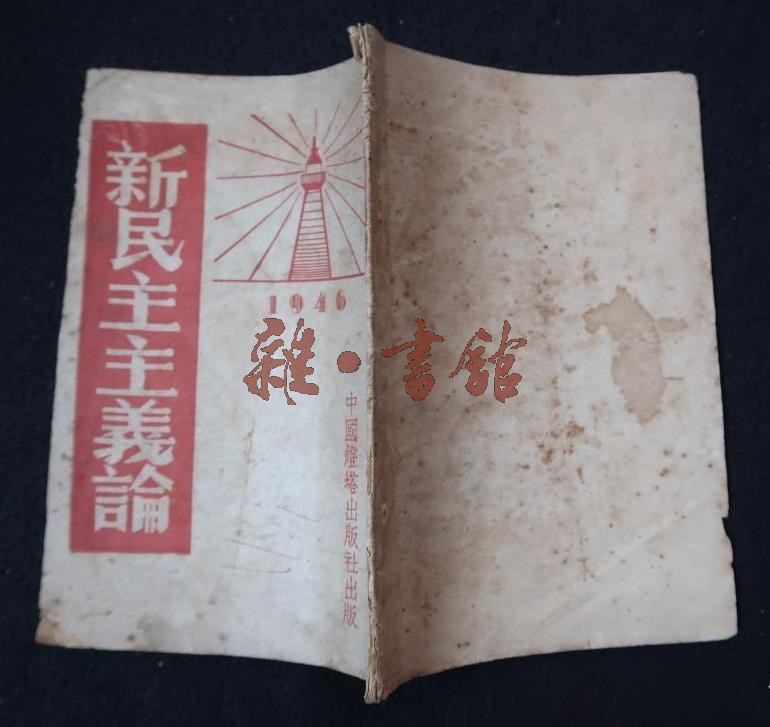 新民主主義論
1946
雜·書館
中國燈塔出版社出版